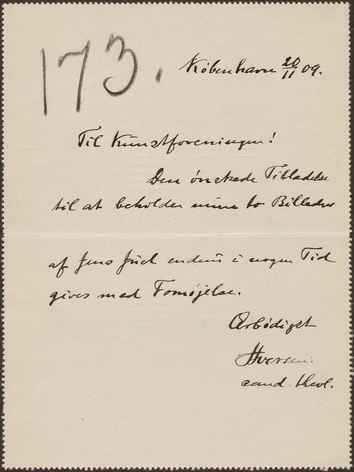 173.
København 20/11 09.
Til Kunstforeningen!
Den ønskede Tilladelse
til at beholde mine to Billeder
af Jens Juel endnu i nogen Tid
gives med Fornøjelse.
Ærbødigst
Iversen.
cand. theol.